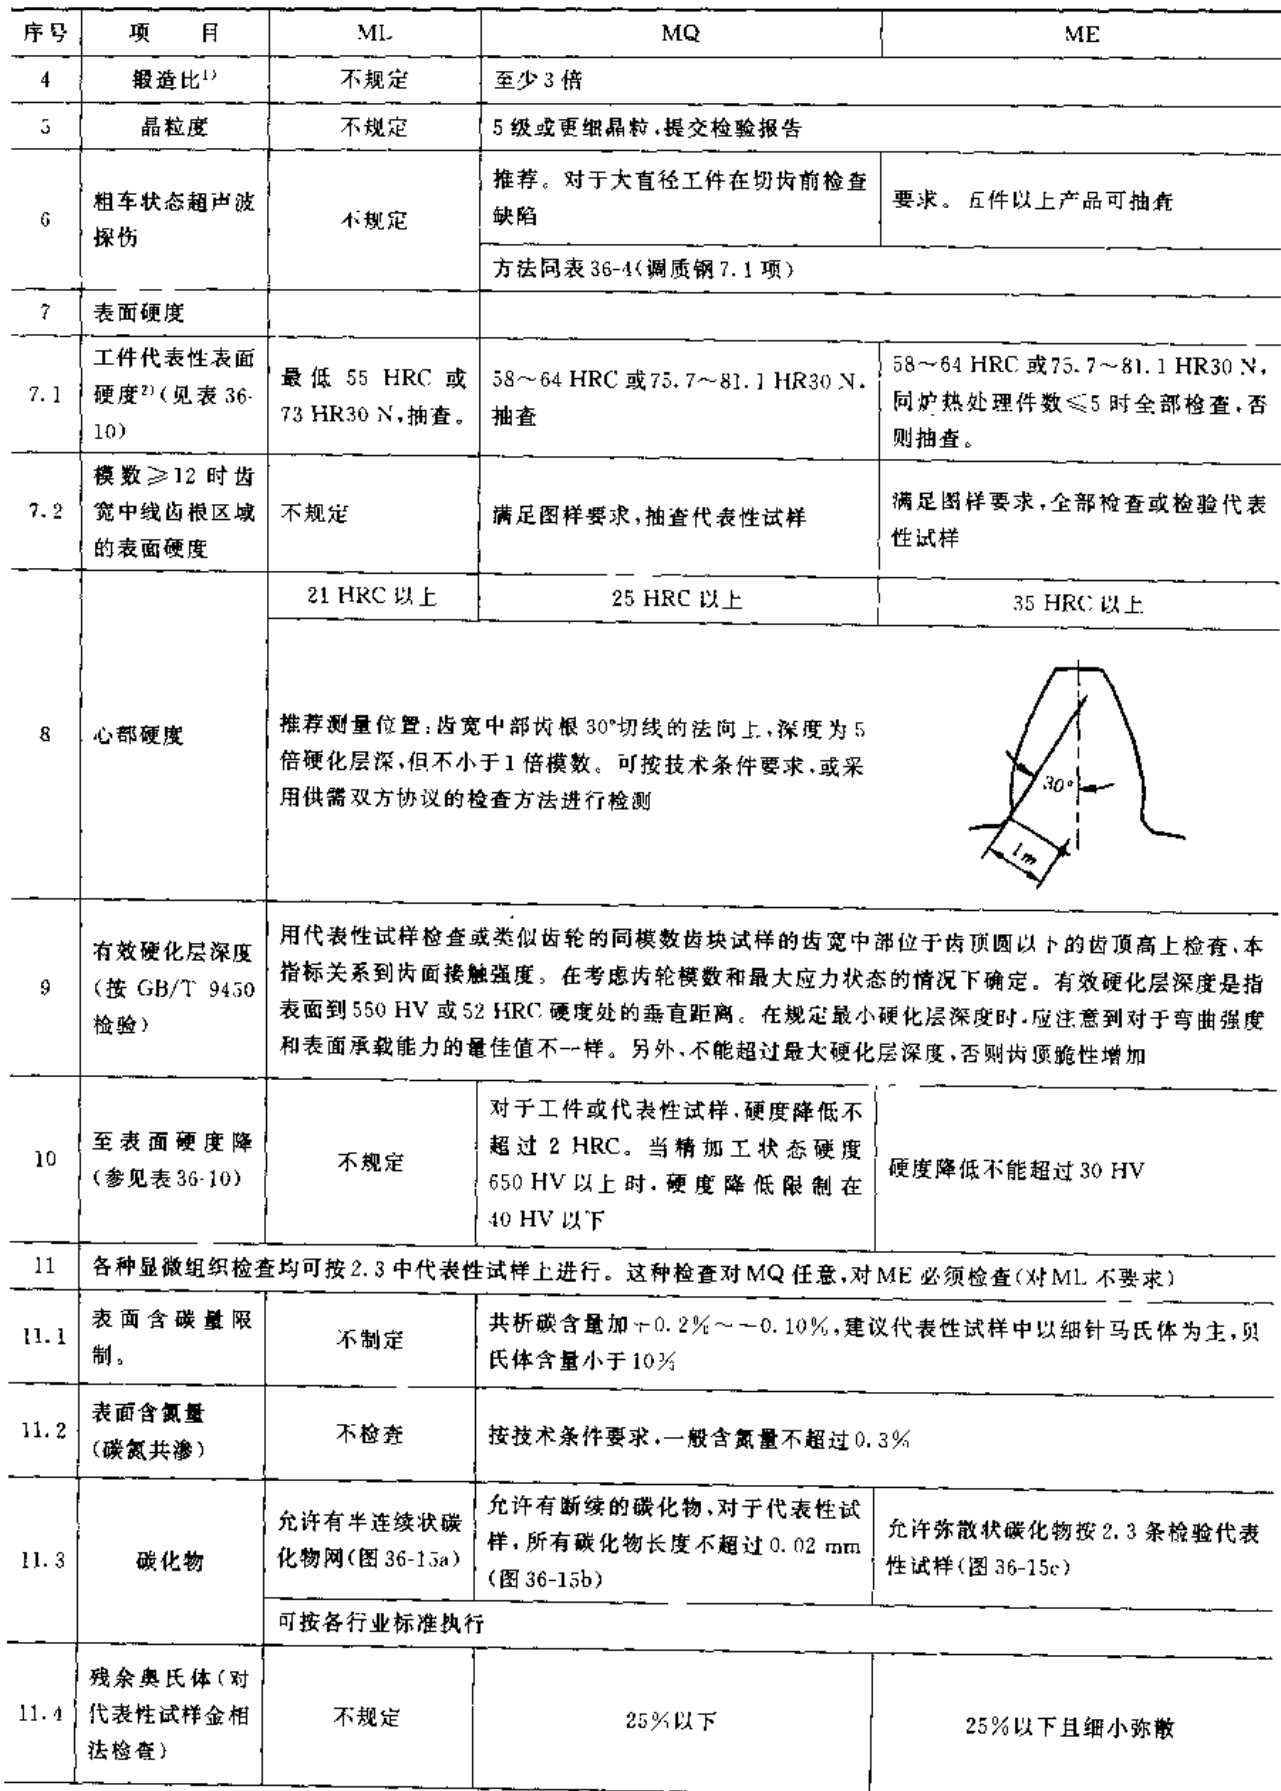 序号 项 目 ML MQ ME
4 锻造比1) 不规定 至少3倍
5 晶粒度 不规定 5级或更细晶粒,提交检验报告
6
粗车状态超声波
探伤
不规定
推荐。对于大直径工件在切齿前检查
缺陷
要求。五件以上产品可抽查
方法同表36-4(调质钢7.1项)
7 表面硬度
7.1
工件代表性表面
硬度2)(见表36-
10)
最低 55 HRC 或
73 HR30 N,抽查。
58～64 HRC或75.7～81.1 HR30 N,
抽查
58～64 HRC或75.7～81.1 HR30 N,
同炉热处理件数≤5时全部检查,否
则抽查。
7.2
模数≥12时齿
宽中线齿根区域
的表面硬度
不规定
满足图样要求,抽查代表性试样
满足图样要求,全部检查或检验代表
性试样
8
心部硬度
21 HRC以上 25 HRC以上 35 HRC以上
推荐测量位置:齿宽中部齿根30°切线的法向上,深度为5
倍硬化层深,但不小于1倍模数。可按技术条件要求,或采
用供需双方协议的检查方法进行检测
30°
1m
9
有效硬化层深度
(按 GB/T 9450
检验)
用代表性试样检查或类似齿轮的同模数齿块试样的齿宽中部位于齿顶圆以下的齿顶高上检查,本
指标关系到齿面接触强度。在考虑齿轮模数和最大应力状态的情况下确定。有效硬化层深度是指
表面到550 HV或52 HRC硬度处的垂直距离。在规定最小硬化层深度时,应注意到对于弯曲强度
和表面承载能力的最佳值不一样。另外,不能超过最大硬化层深度,否则齿顶脆性增加
10
至表面硬度降
(参见表36-10)
不规定
对于工件或代表性试样,硬度降低不
超过 2 HRC。当精加工状态硬度
650 HV以上时,硬度降低限制在
40 HV以下
硬度降低不能超过30 HV
11 各种显微组织检查均可按2.3中代表性试样上进行。这种检查对MQ任意,对ME必须检查(对ML不要求)
11.1
表面含碳量限
制。
不制定
共析碳含量加+0.2%～-0.10%,建议代表性试样中以细针马氏体为主,贝
氏体含量小于10%
11.2
表面含氮量
(碳氮共渗)
不检查
按技术条件要求,一般含氮量不超过0.3%
11.3
碳化物
允许有半连续状碳
化物网(图36-15a)
允许有断续的碳化物,对于代表性试
样,所有碳化物长度不超过0.02 mm
(图36-15b)
允许弥散状碳化物按2.3条检验代表
性试样(图36-15c)
可按各行业标准执行
11.4
残余奥氏体(对
代表性试样金相
法检查)
不规定
25%以下
25%以下且细小弥散